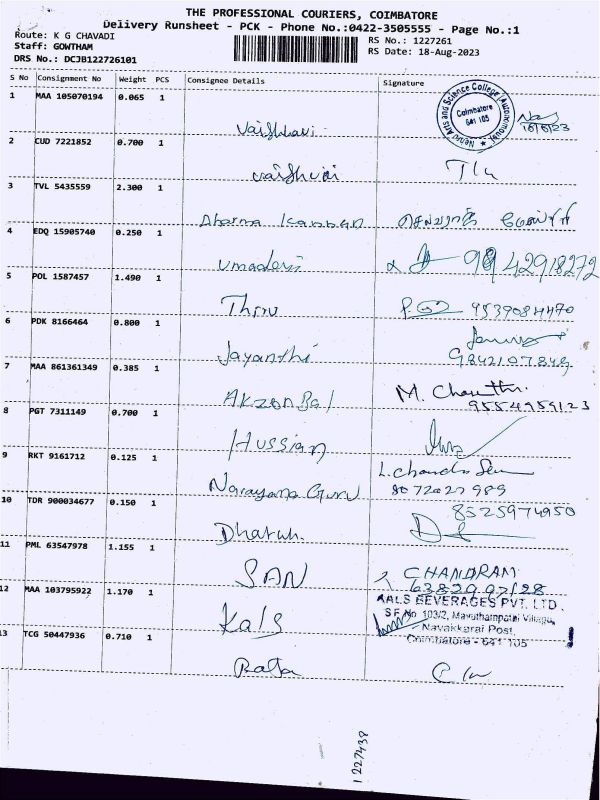 THE PROFESSIONAL COURIERS, COIMBATORE
Delivery Runsheet - PCK - Phone No.:0422-3505555 - Page No.:1
Route: K G CHAVADI
RS No.: 1227261
Staff: GOWTHAM
RS Date: 18-Aug-2023
DRS No.: DCJB122726101
S No Consignment No Weight PCS Consignee Details Signature
1 MAA 105070194 0.065 1 Vaishnavi
Nehru Arts and Science College (Autonomous)
Coimbatore
641 105
2 CUD 7221852 0.700 1
3 TVL 5435559 2.300 1 Dharma Kannan
4 EDQ 15905740 0.250 1 Umadevi
5 POL 1587457 1.490 1 Thiru
6 PDK 8166464 0.800 1 Jayanthi
7 MAA 861361349 0.385 1 M.
9554959123
8 PGT 7311149 0.700 1 Hussian
9 RKT 9161712 0.125 1 Narayana Guru L. Chandra
8072027989
10 TDR 900034677 0.150 1
8525974950
11 PML 63547978 1.155 1 SAN CHANDRAM
12 MAA 103795922 1.170 1 Kals
KALS BEVERAGES PVT. LTD.
S.F.No 103/2, Mavuthampathi Village,
Navakkarai Post,
Coimbatore - 641 105
13 TCG 50447936 0.710 1
1227438